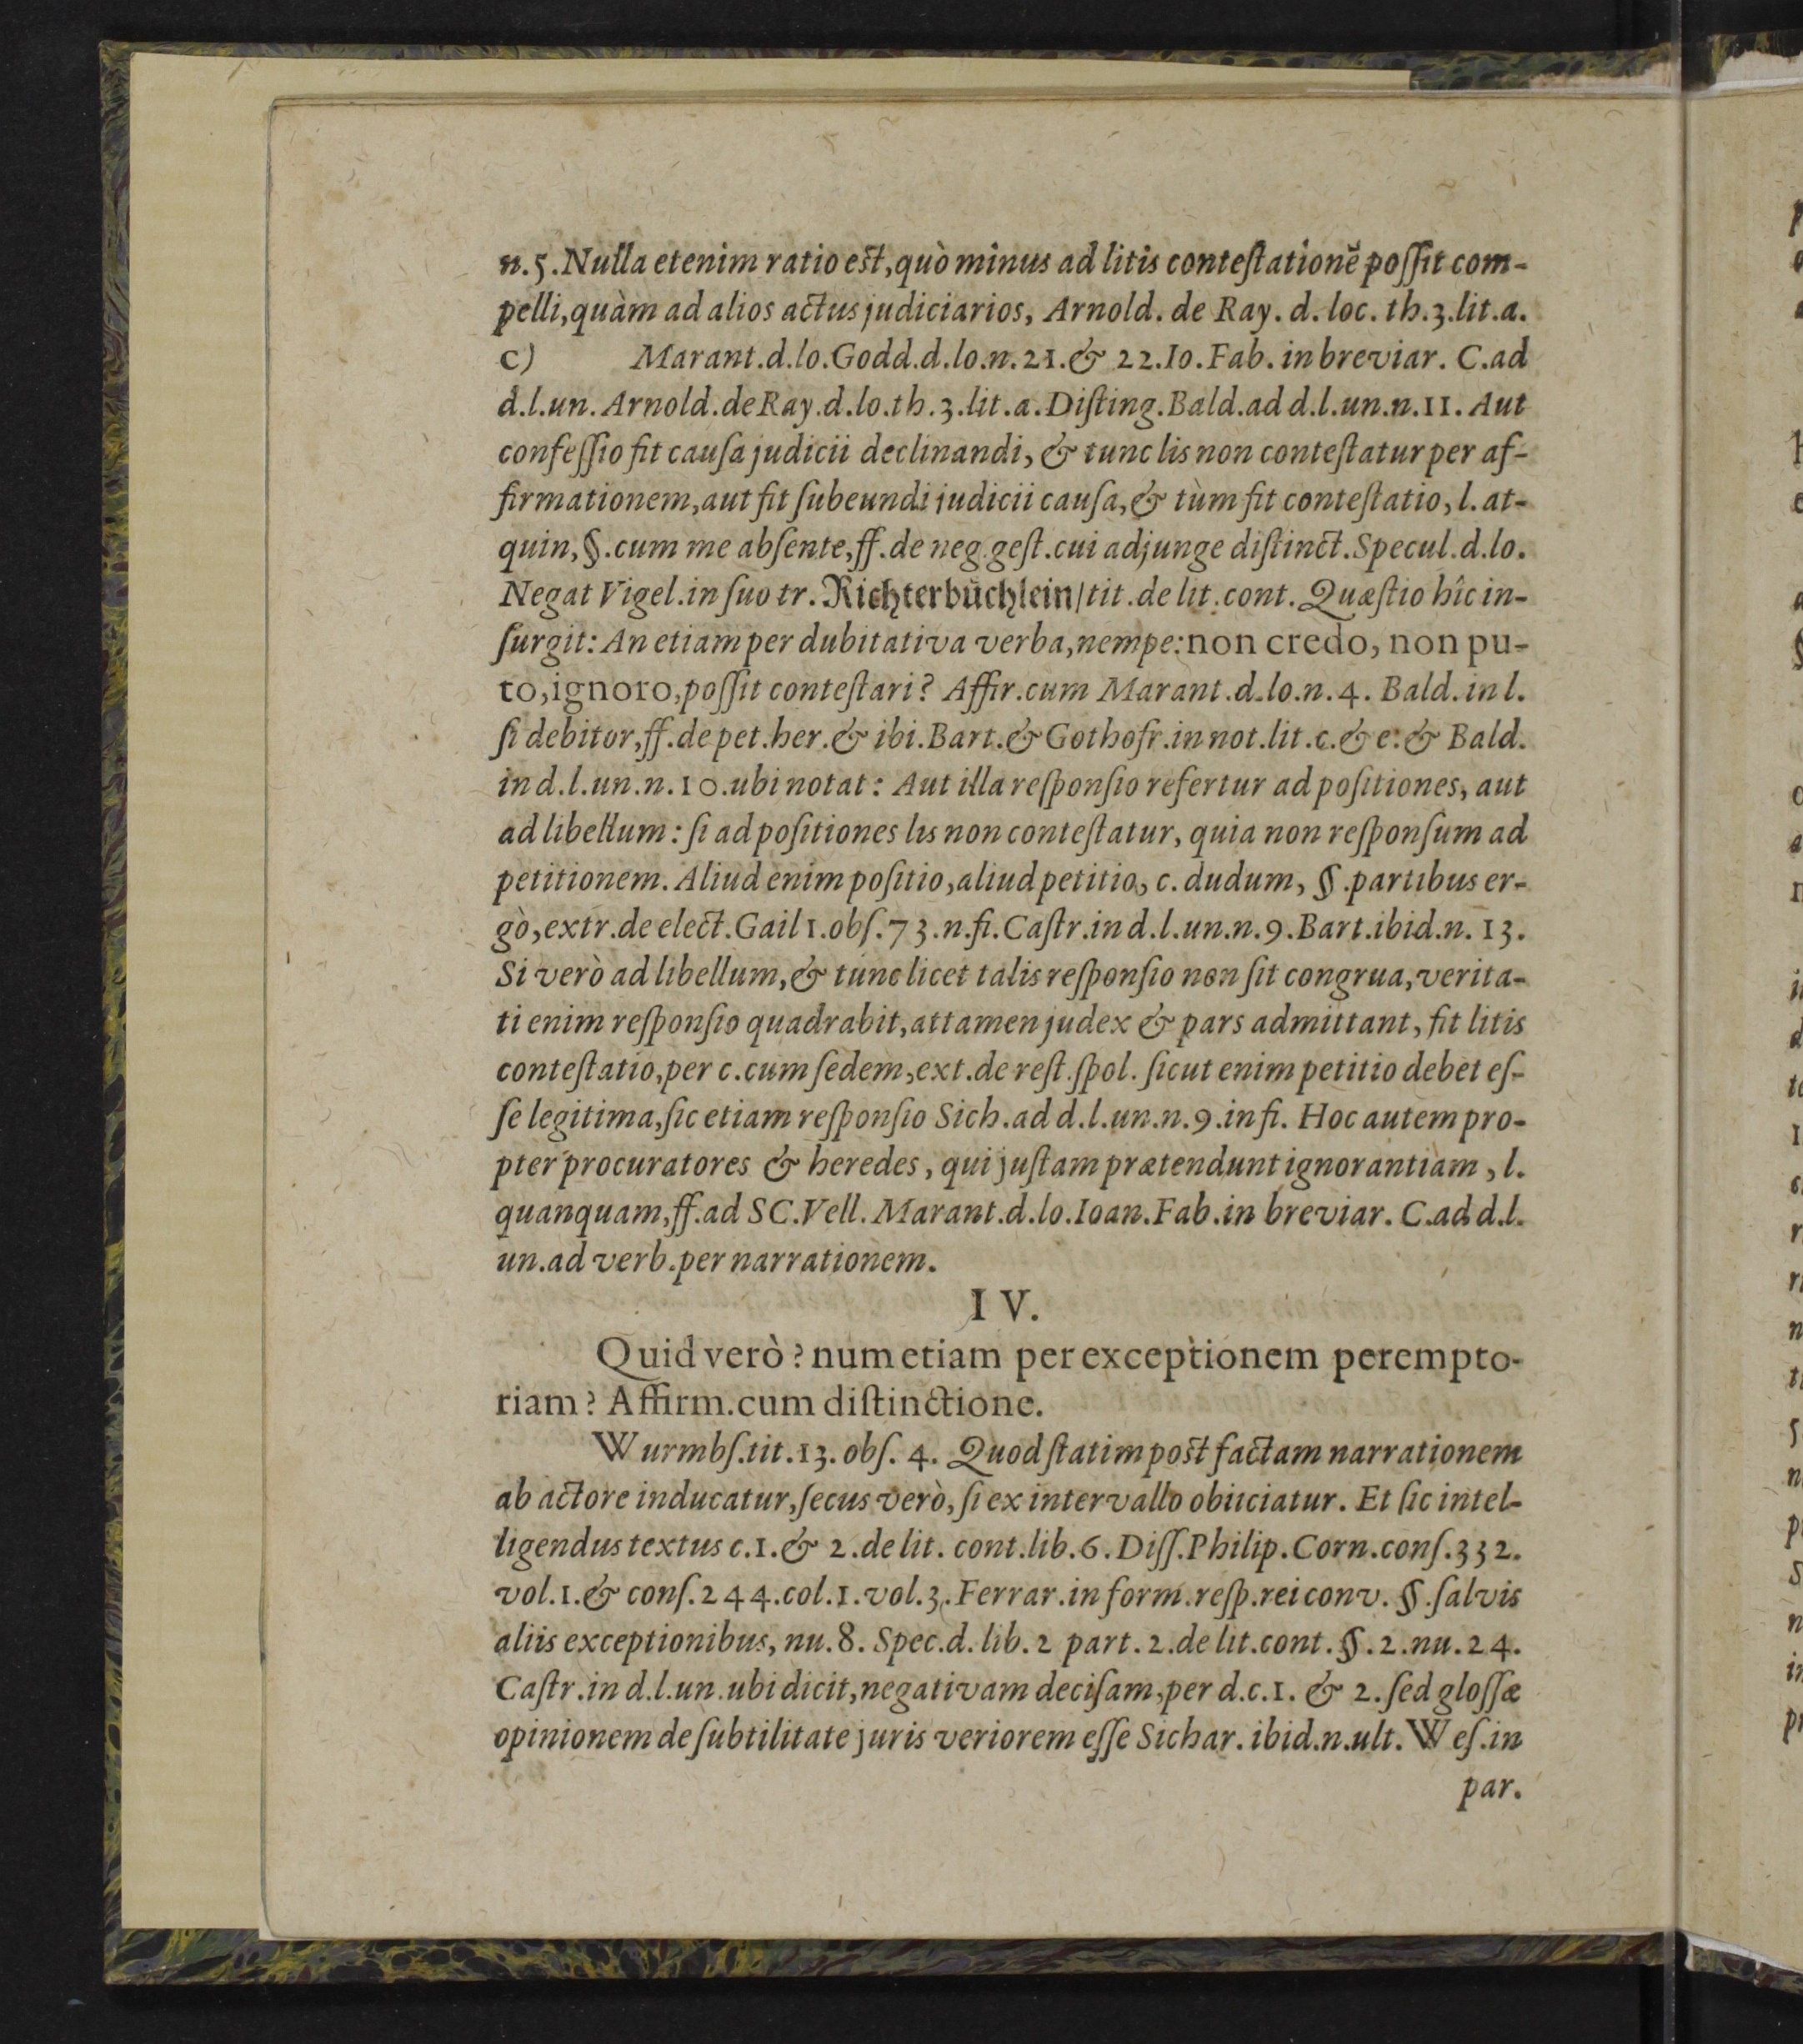 n.5.Nulla etenim ratio est,quò minus ad litis conteſtationẽ poſſit com-
pelli,quàm ad alios actus judiciarios, Arnold. de Ray. d. loc. th.3.lit.a.
c) Marant.d.lo.Godd.d.lo.n.21.& 22.Io.Fab. in breviar. C.ad
d.l.un. Arnold.de Ray.d.lo.th.3.lit.a.Diſting.Bald.ad d.l.un.n.11. Aut
confeſſio fit cauſa judicii declinandi, & tunc lis non conteſtatur per af-
firmationem,aut fit ſubeundi judicii cauſa,& tùm fit conteſtatio, l. at-
quin, §.cum me abſente,ff.de neg.geſt.cui adjunge diſtinct.Specul.d.lo.
Negat Vigel.in ſuo tr. Richterbüchlein/tit.de lit.cont. Quæſtio hîc in-
ſurgit: An etiam per dubitativa verba,nempe:non credo, non pu-
to,ignoro,poſſit conteſtari? Affir.cum Marant.d.lo.n.4. Bald.in l.
ſi debitor,ff.de pet.her.& ibi.Bart.& Gothofr.in not.lit.c.& e.& Bald.
in d.l.un.n.10.ubi notat: Aut illa reſponſio refertur ad poſitiones, aut
ad libellum: ſi ad poſitiones lis non conteſtatur, quia non reſponſum ad
petitionem. Aliud enim poſitio,aliud petitio, c. dudum, §.partibus er-
gò,extr.de elect.Gail 1.obſ.73.n.fi.Caſtr.in d.l.un.n.9.Bart.ibid.n.13.
Si verò ad libellum,& tunc licet talis reſponſio non ſit congrua,verita-
ti enim reſponſio quadrabit,attamen judex & pars admittant, fit litis
conteſtatio,per c.cum ſedem,ext.de reſt.ſpol. ſicut enim petitio debet eſ-
ſe legitima,ſic etiam reſponſio Sich.ad d.l.un.n.9.in fi. Hoc autem pro-
pter procuratores & heredes, qui juſtam prætendunt ignorantiam, l.
quanquam,ff.ad SC.Vell. Marant.d.lo.Ioan.Fab.in breviar. C.ad d.l.
un.ad verb.per narrationem.
IV.
Quid verò? num etiam per exceptionem perempto-
riam? Affirm.cum diſtinctione.
Wurmbſ.tit.13.obſ. 4. Quod ſtatim post factam narrationem
ab actore inducatur,ſecus verò, ſi ex intervallo obiiciatur. Et ſic intel-
ligendus textus c.1.& 2.de lit. cont.lib.6.Diſſ.Philip.Corn.conſ.332.
vol.1.& conſ.244.col.1.vol.3.Ferrar.in form.reſp.rei conv. §.ſalvis
aliis exceptionibus, nu.8. Spec.d.lib.2 part.2.de lit.cont.§.2.nu.24.
Caſtr.in d.l.un.ubi dicit,negativam deciſam,per d.c.1. & 2.ſed gloſſæ
opinionem de ſubtilitate juris veriorem eſſe Sichar. ibid.n.ult. Weſ.in
par.